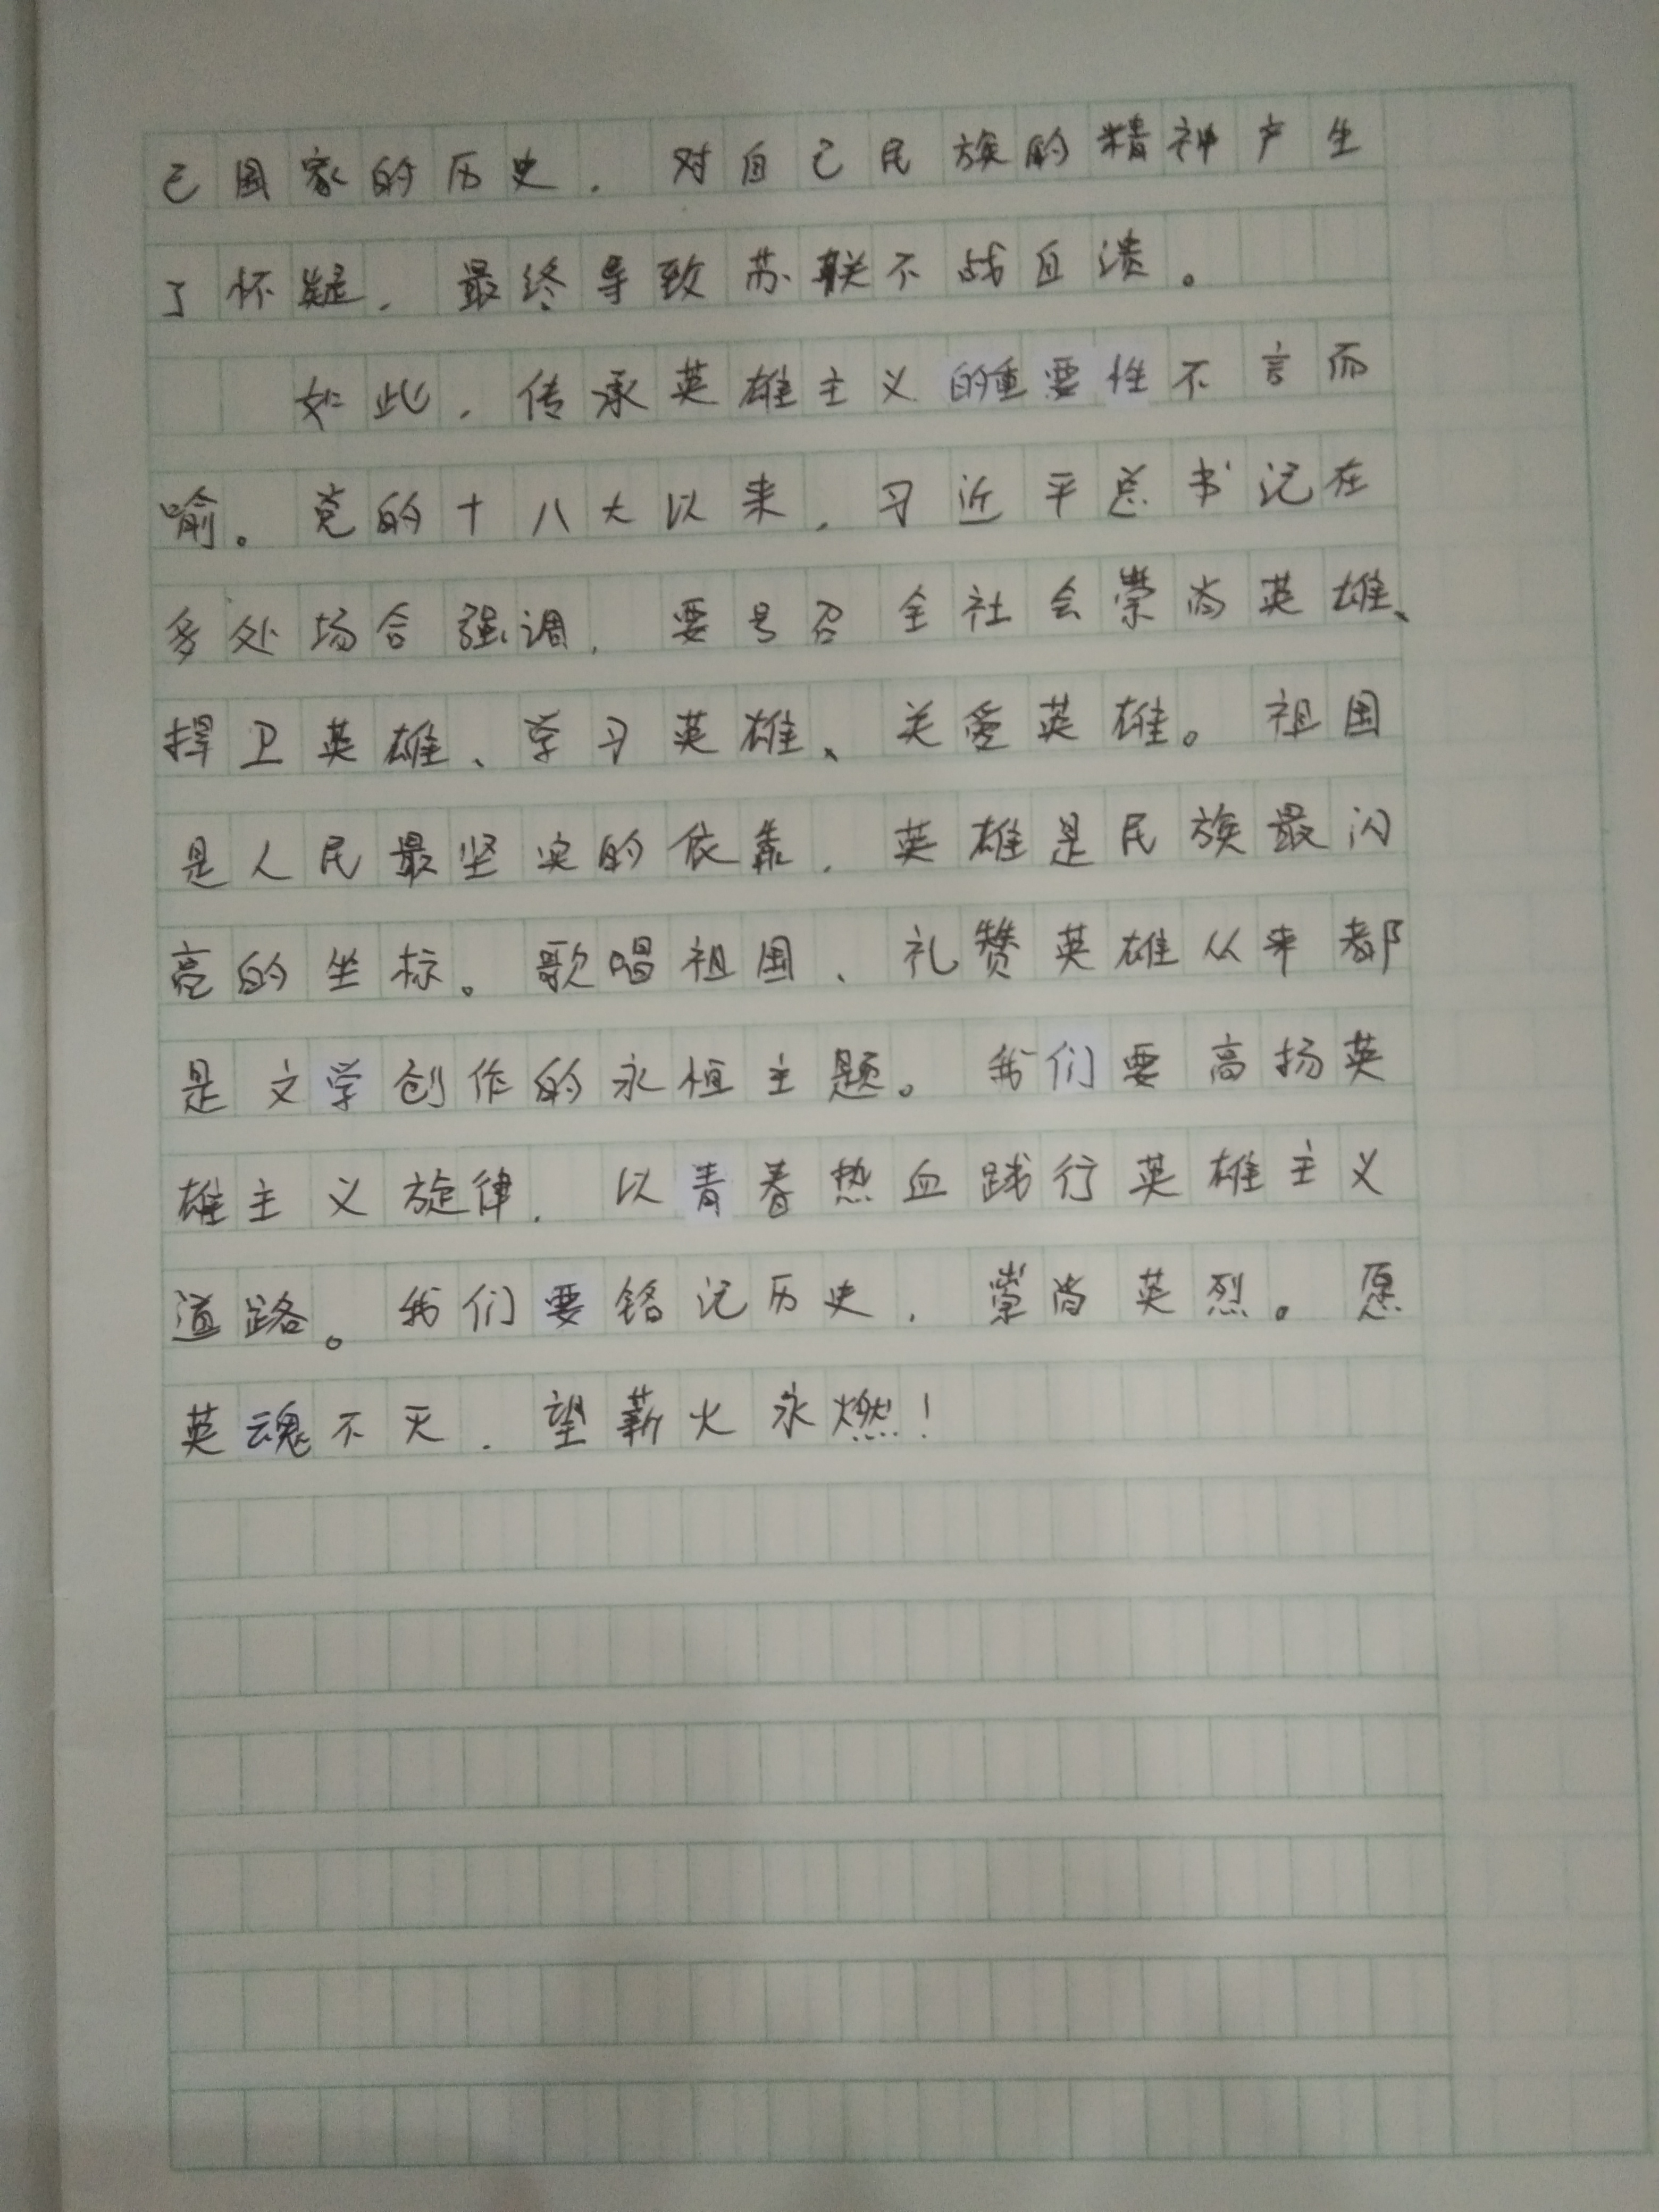 己国家的历史，对自己民族的精神产生
了怀疑，最终导致苏联不战自溃。
如此，传承英雄主义的重要性不言而
喻。党的十八大以来，习近平总书记在
多处场合强调，要号召全社会崇尚英雄、
捍卫英雄、学习英雄、关爱英雄。祖国
是人民最坚实的依靠，英雄是民族最闪
亮的坐标。歌唱祖国、礼赞英雄从来都
是文学创作的永恒主题。我们要高扬英
雄主义旋律，以青春热血践行英雄主义
道路。我们要铭记历史，崇尚英烈。愿
英魂不灭，望薪火永燃！